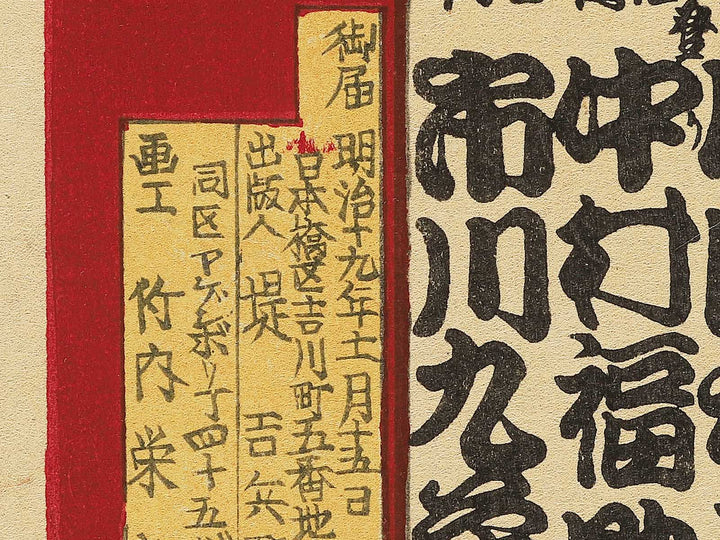 登
中村福助
市川九蔵
御届 明治十九年十一月十五日
日本橋区吉川町五番地
出版人 堤 吉兵
同区ヤゲンボリ丁四十五
画工 竹内栄